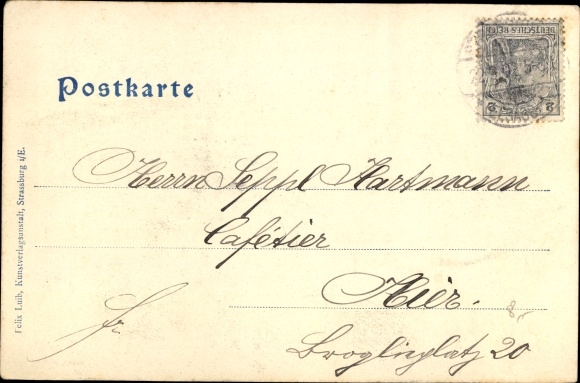 Postkarte
DEUTSCHES REICH
2 2
Herrn Seppl Hartmann
Cafétier
Hier.
Broglieplatz 20
fr.
8,-
Felix Luib, Kunstverlagsanstalt, Strassburg i/E.